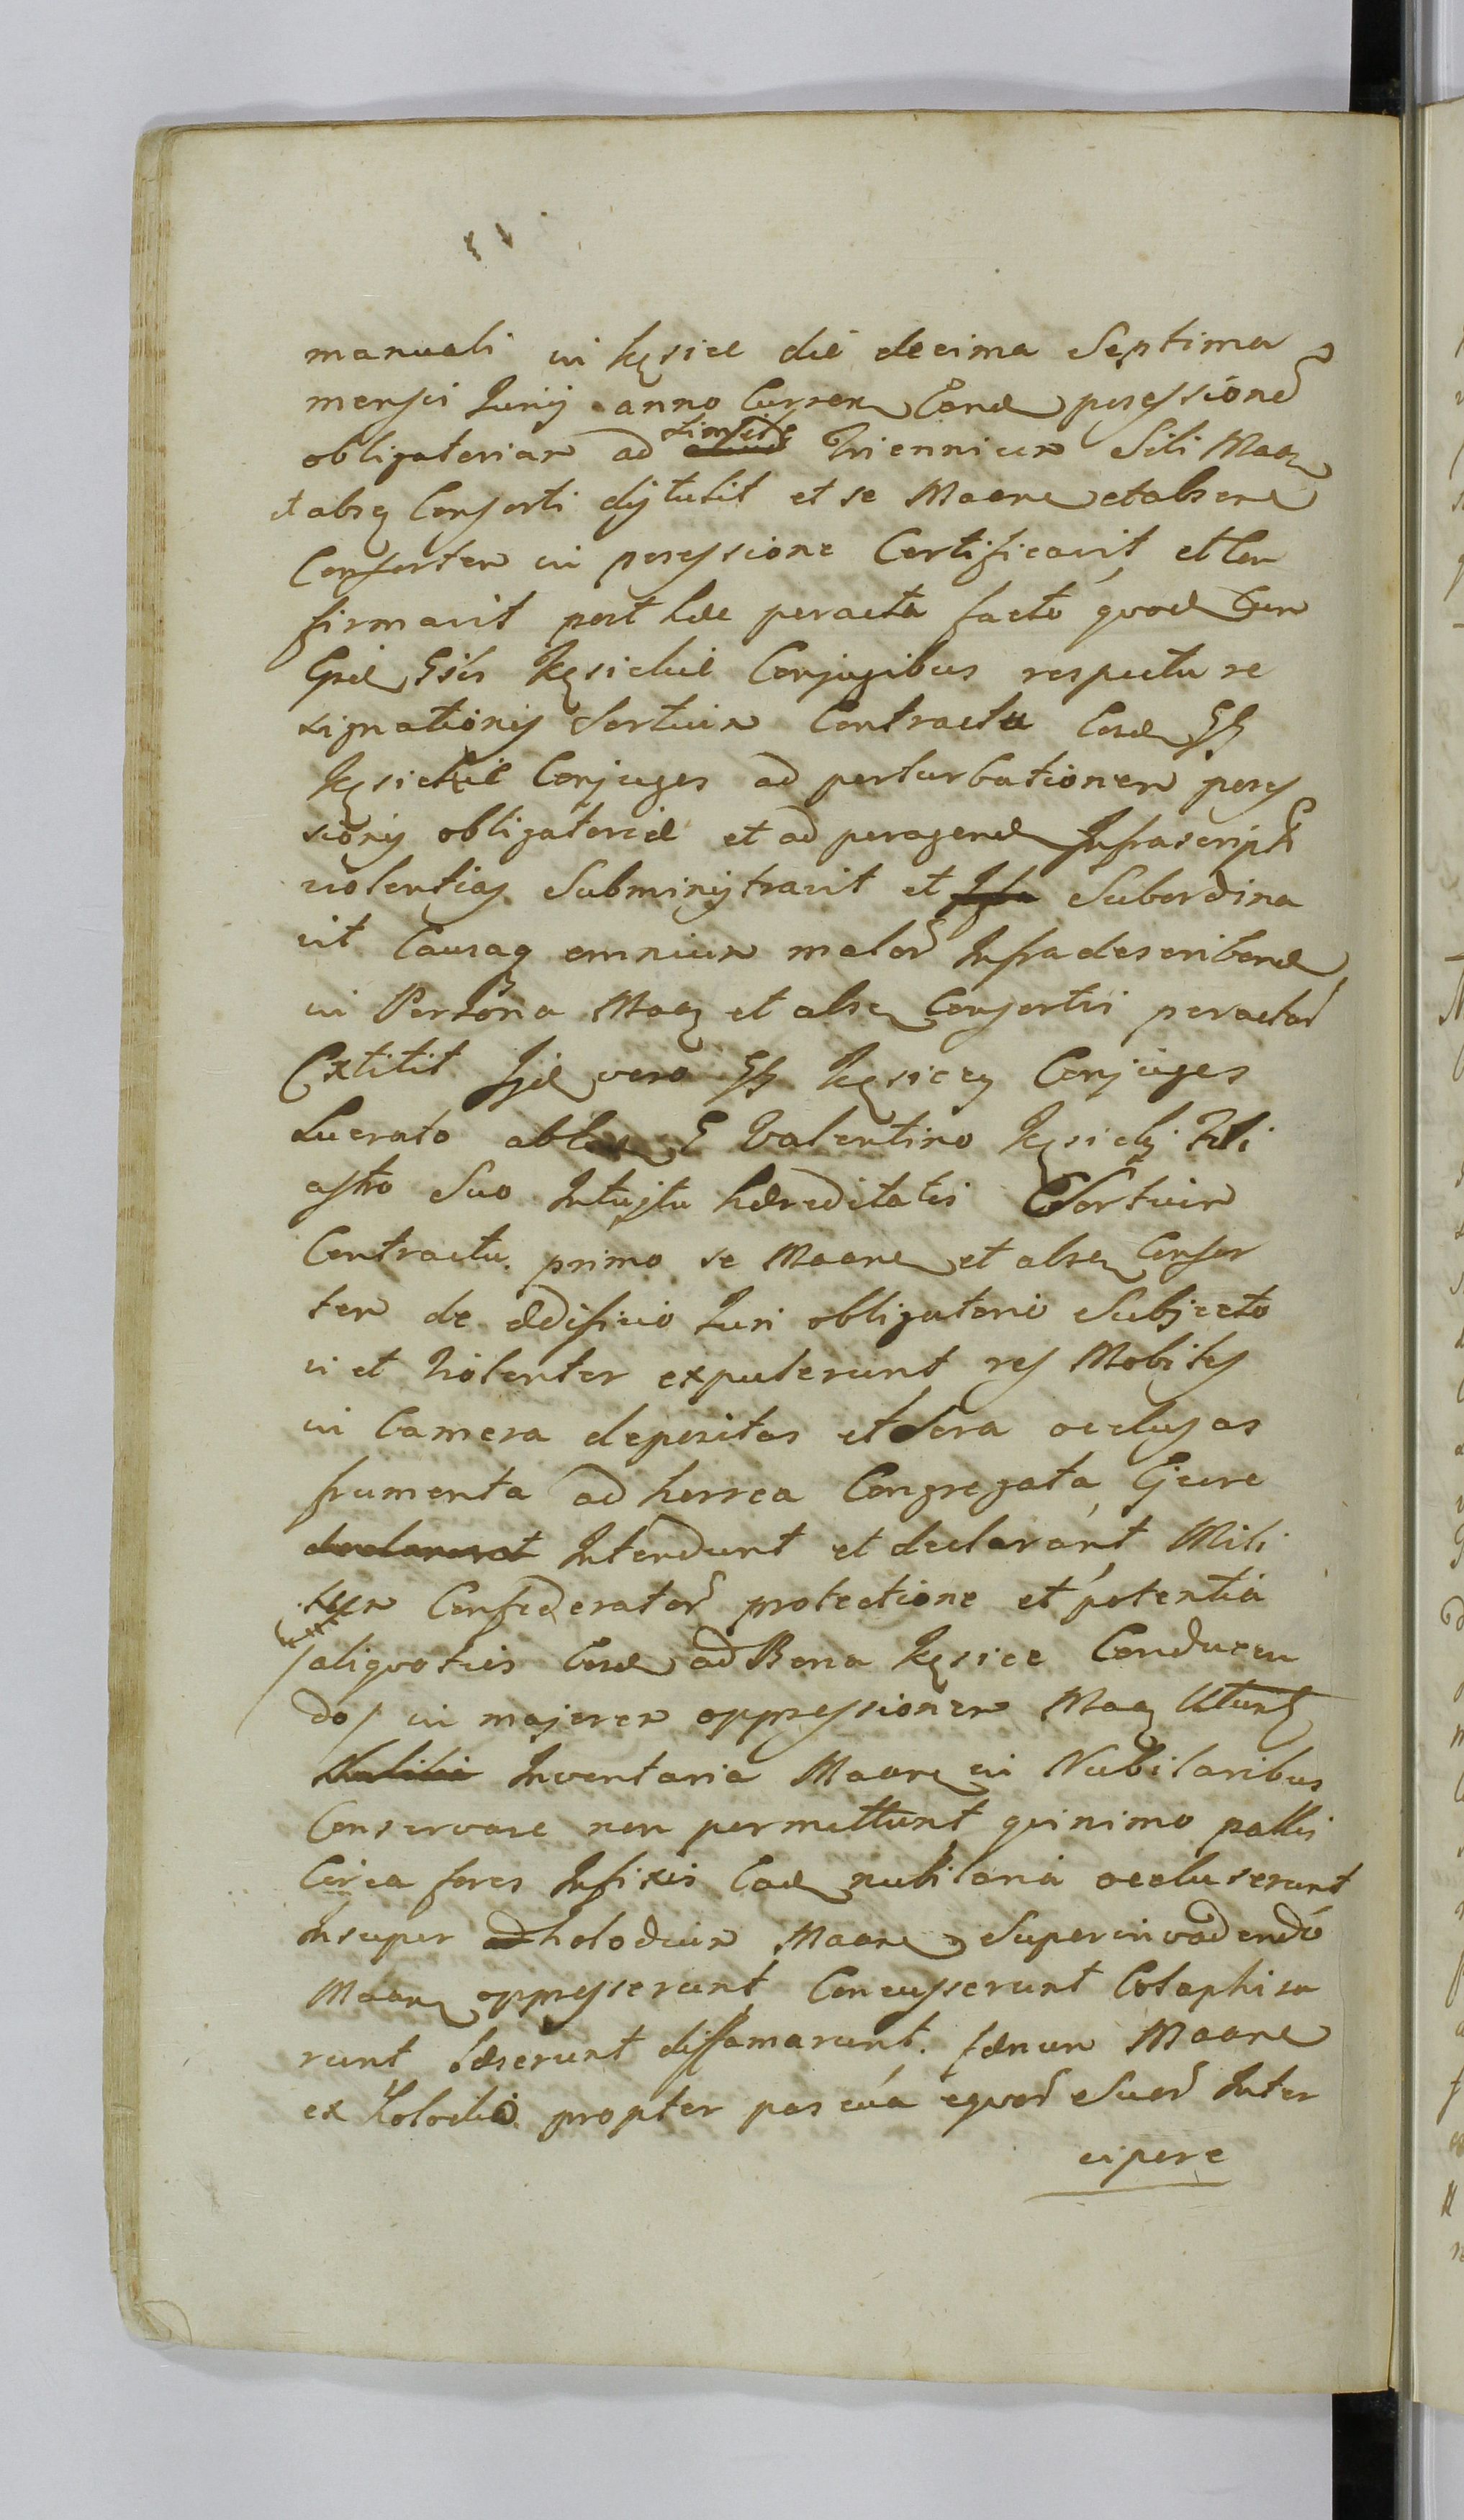 manuali in Kęsice die decima Septima
mensis Junij anno Curren Eand possessione
obligatoriam ad simile Triennium Sibi Maan
et absq Consorti distulit et se Maane et absene
Consortem in possessione Certificavit et Con
firmavit post hæc peracta facto quod Cum
Gsd Gsis Kęsickie Conjugibus respectu re
signationis Sortium Contractu Eosd GG
Kęsickie Conjuges ad perturbationem posses
sionis obligatoriæ et ad peragend Infrascript
violentias Subministravit et Subordina
vit Causaq omnium malor Infradescribend
in Persona Maan et absen Consortis peractar
Extitit Ijd vero GG Kęsiccy Conjuges
Lucrato G Valentino Kęsicki Fili
astro Suo Intuitu hæreditatis Sortium
Contractu primo se Maane et absen Consor
tem de ædificio Juri obligatorio Subjecto
vi et violenter expulerunt res Mobiles
in Camera depositas et Sera occlusas
frumenta ad horrea Congregata Ejicere
declararunt Intendunt et declarant Mili
tum Confederator protectione et potentia
/aliquoties Eosd ad Bona Kęsice Conducen
do/ in majorem oppressionem Maan Utunt
Inventaria Maane in Nubilaribus
Conservare non permittunt quinimo pallis
Circa fores Infixis Ead nubilaria occluserunt
Insuper ad holodium Maane Superinvadendo
Maane oppresserunt Concusserunt Colaphisa
runt læserunt diffamarunt. fænum Maane
ex holodio propter pascua equor Suor Inter
cipere